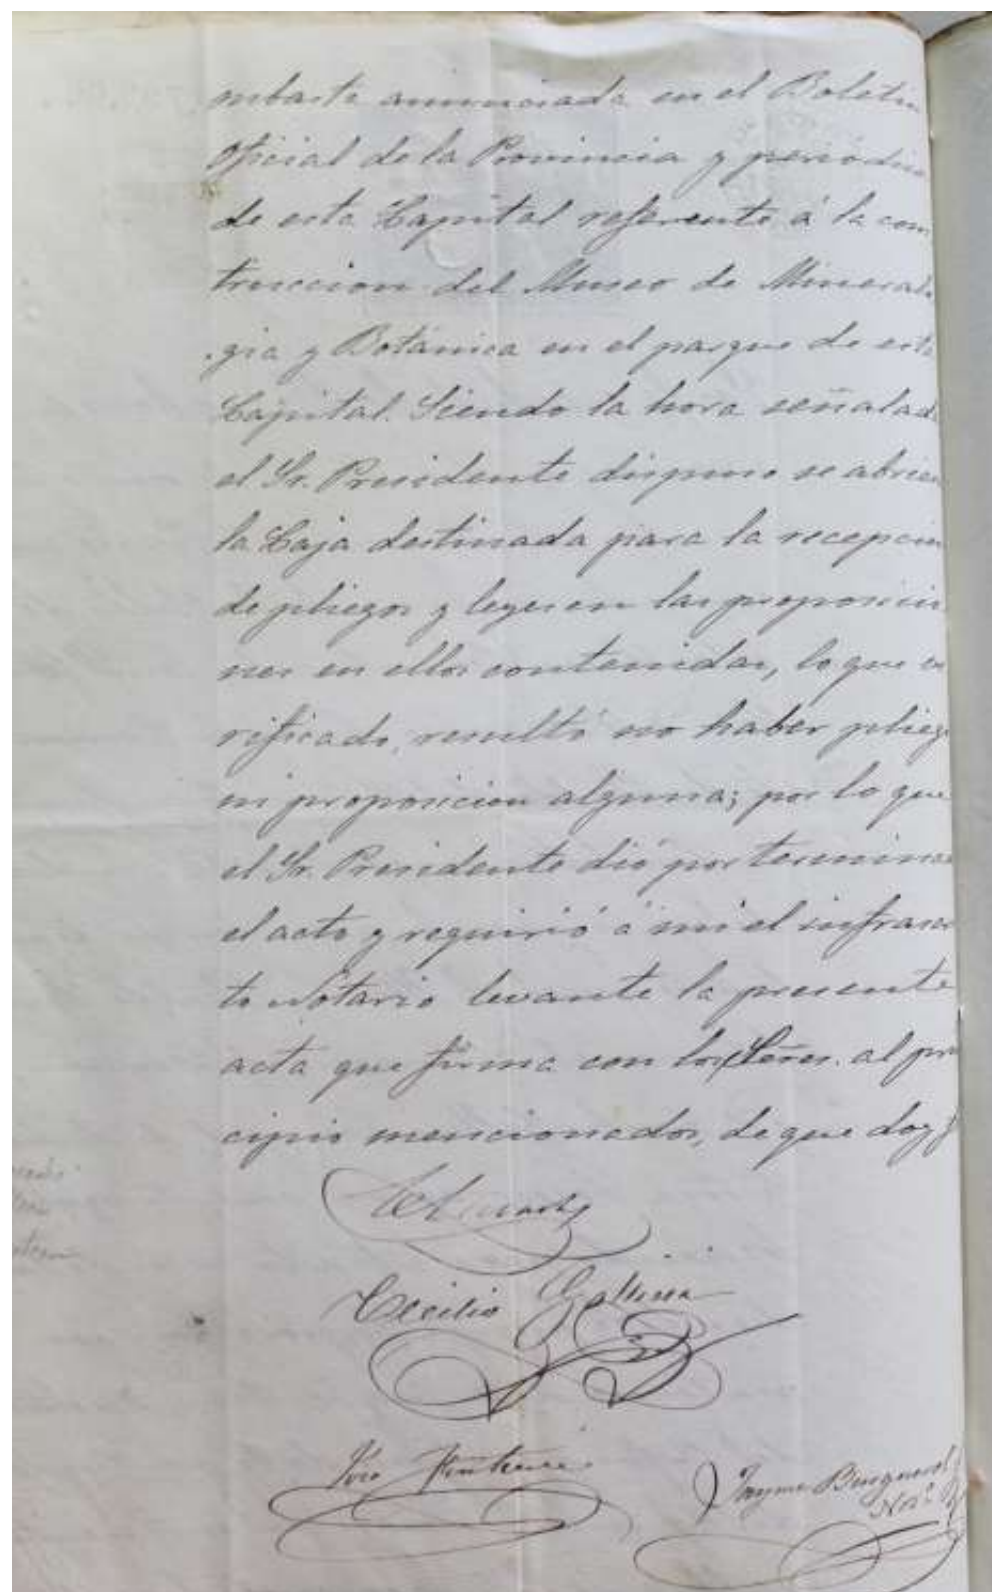 subasta anunciada en el Boletin
Oficial de la Provincia y periódico
de esta Capital referente á la cons
truccion del Museo de Mineralo
gia y Botánica en el parque de esta
Capital. Siendo la hora señalada
el Sr. Presidente dispuso se abriera
la Caja destinada para la recepcion
de pliegos y leyesen las proposicio
nes en ellos contenidas, lo que ve
rificado, resultó no haber pliego
ni proposicion alguna; por lo que
el Sr. Presidente dió por terminado
el acto y requirió á mi el infrascri
to Notario levante la presente
acta que firma con los Señores. al prin
cipio mencionados, de que doy fe
Cecilio
José Fontseré
Jayme Burguerol
Not.º